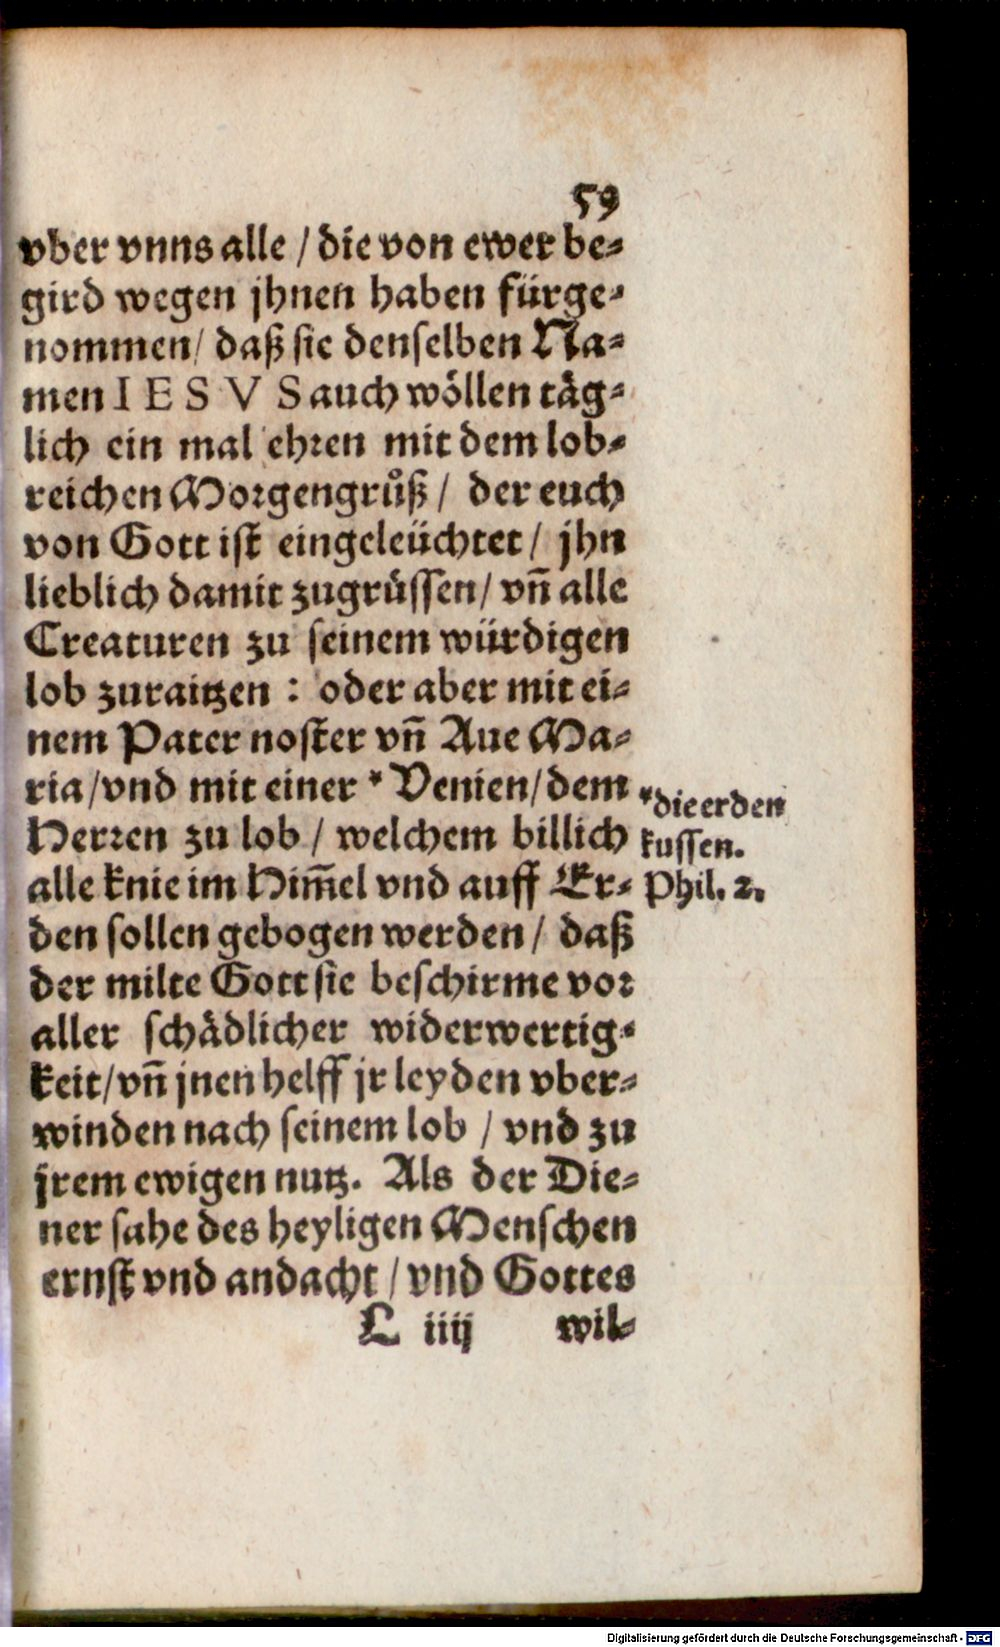 59
vber vnns alle / die von ewer be-
gird wegen jhnen haben fürge-
nommen/ daß sie denselben Na-
men I E S V S auch wöllen täg-
lich ein mal ehren mit dem lob-
reichen Morgengrůß / der euch
von Gott ist eingeleüchtet / jhn
lieblich damit zugrüssen/ vñ alle
Creaturen zu seinem würdigen
lob zuraitzen : oder aber mit ei-
nem Pater noster vñ Aue Ma-
ria /vnd mit einer * Venien/ dem
Herren zu lob / welchem billich
alle knie im Him̃el vnd auff Er-
den sollen gebogen werden / daß
der milte Gott sie beschirme vor
aller schädlicher widerwertig-
keit/ vñ jnen helff jr leyden vber-
winden nach seinem lob / vnd zu
jrem ewigen nutz. Als der Die-
ner sahe des heyligen Menschen
ernst vnd andacht / vnd Gottes
L iiij wil-
*die erden
kussen.
Phil. 2.
Digitalisierung gefördert durch die Deutsche Forschungsgemeinschaft - DFG